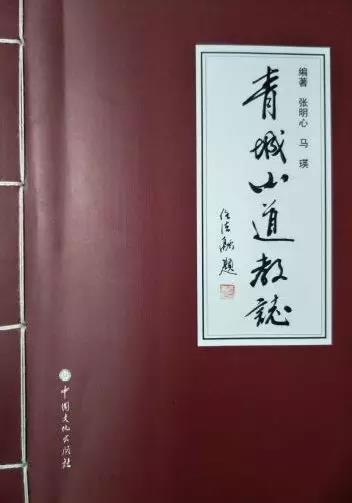 编著 张明心 马瑛
青城山道教誌
任法融题
中国文化出版社